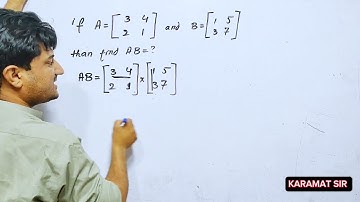 if A = [3 4 2 1] and B = [1 5 3 7]
than find AB = ?
AB = [3 4 2 1] × [1 5 3 7]
KARAMAT SIR